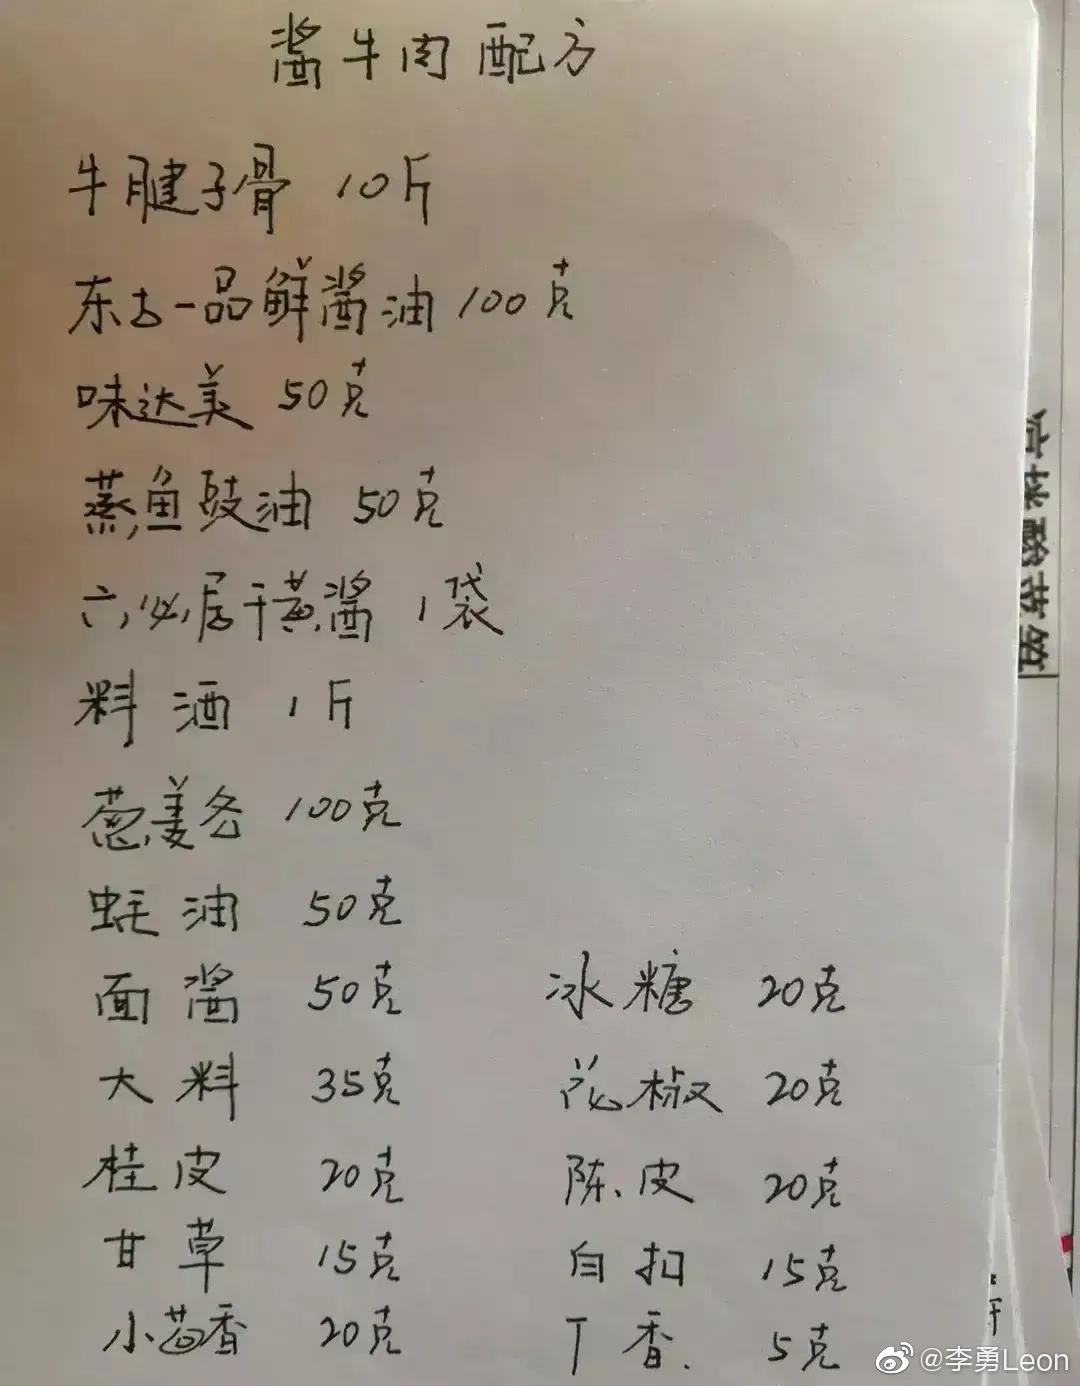 酱牛肉配方
牛腱子骨 10斤
东古一品鲜酱油 100克
味达美 50克
蒸鱼豉油 50克
六必居干黄酱 1袋
料酒 1斤
葱姜各 100克
蚝油 50克
面酱 50克 冰糖 20克
大料 35克 花椒 20克
桂皮 20克 陈皮 20克
甘草 15克 白扣 15克
小茴香 20克 丁香. 5克
@李勇Leon